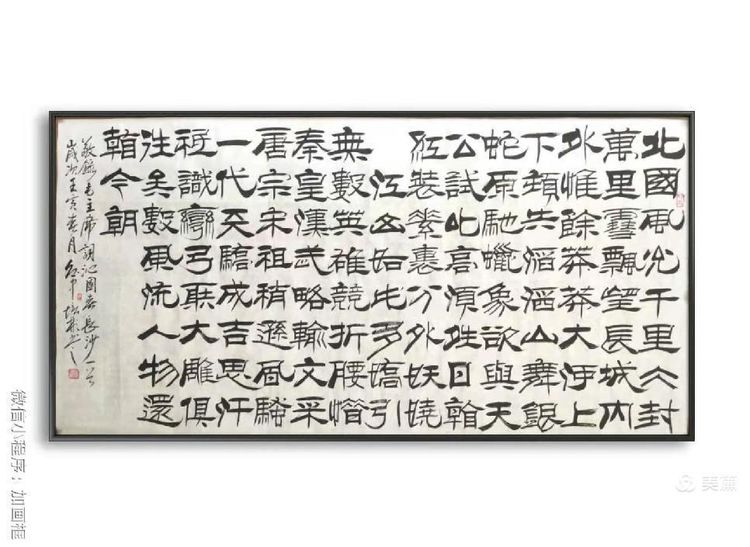 北國風光千里仌封
萬里雪飄望長城内
外惟餘莽莽大河上
下頓失滔滔山舞銀
蛇原馳蠟象欲與天
公試比高須晴日看
紅裝素裹分外妖嬈
江山如此多嬌引
無數英雄競折腰惜
秦皇漢武略輸文采
唐宗宋祖稍遜風騷
一代天驕成吉思汗
祇識彎弓射大雕俱
往矣數風流人物還
看今朝
敬錄毛主席詞沁園春長沙一首
歲次壬寅春月
微信小程序：加画框
美篇